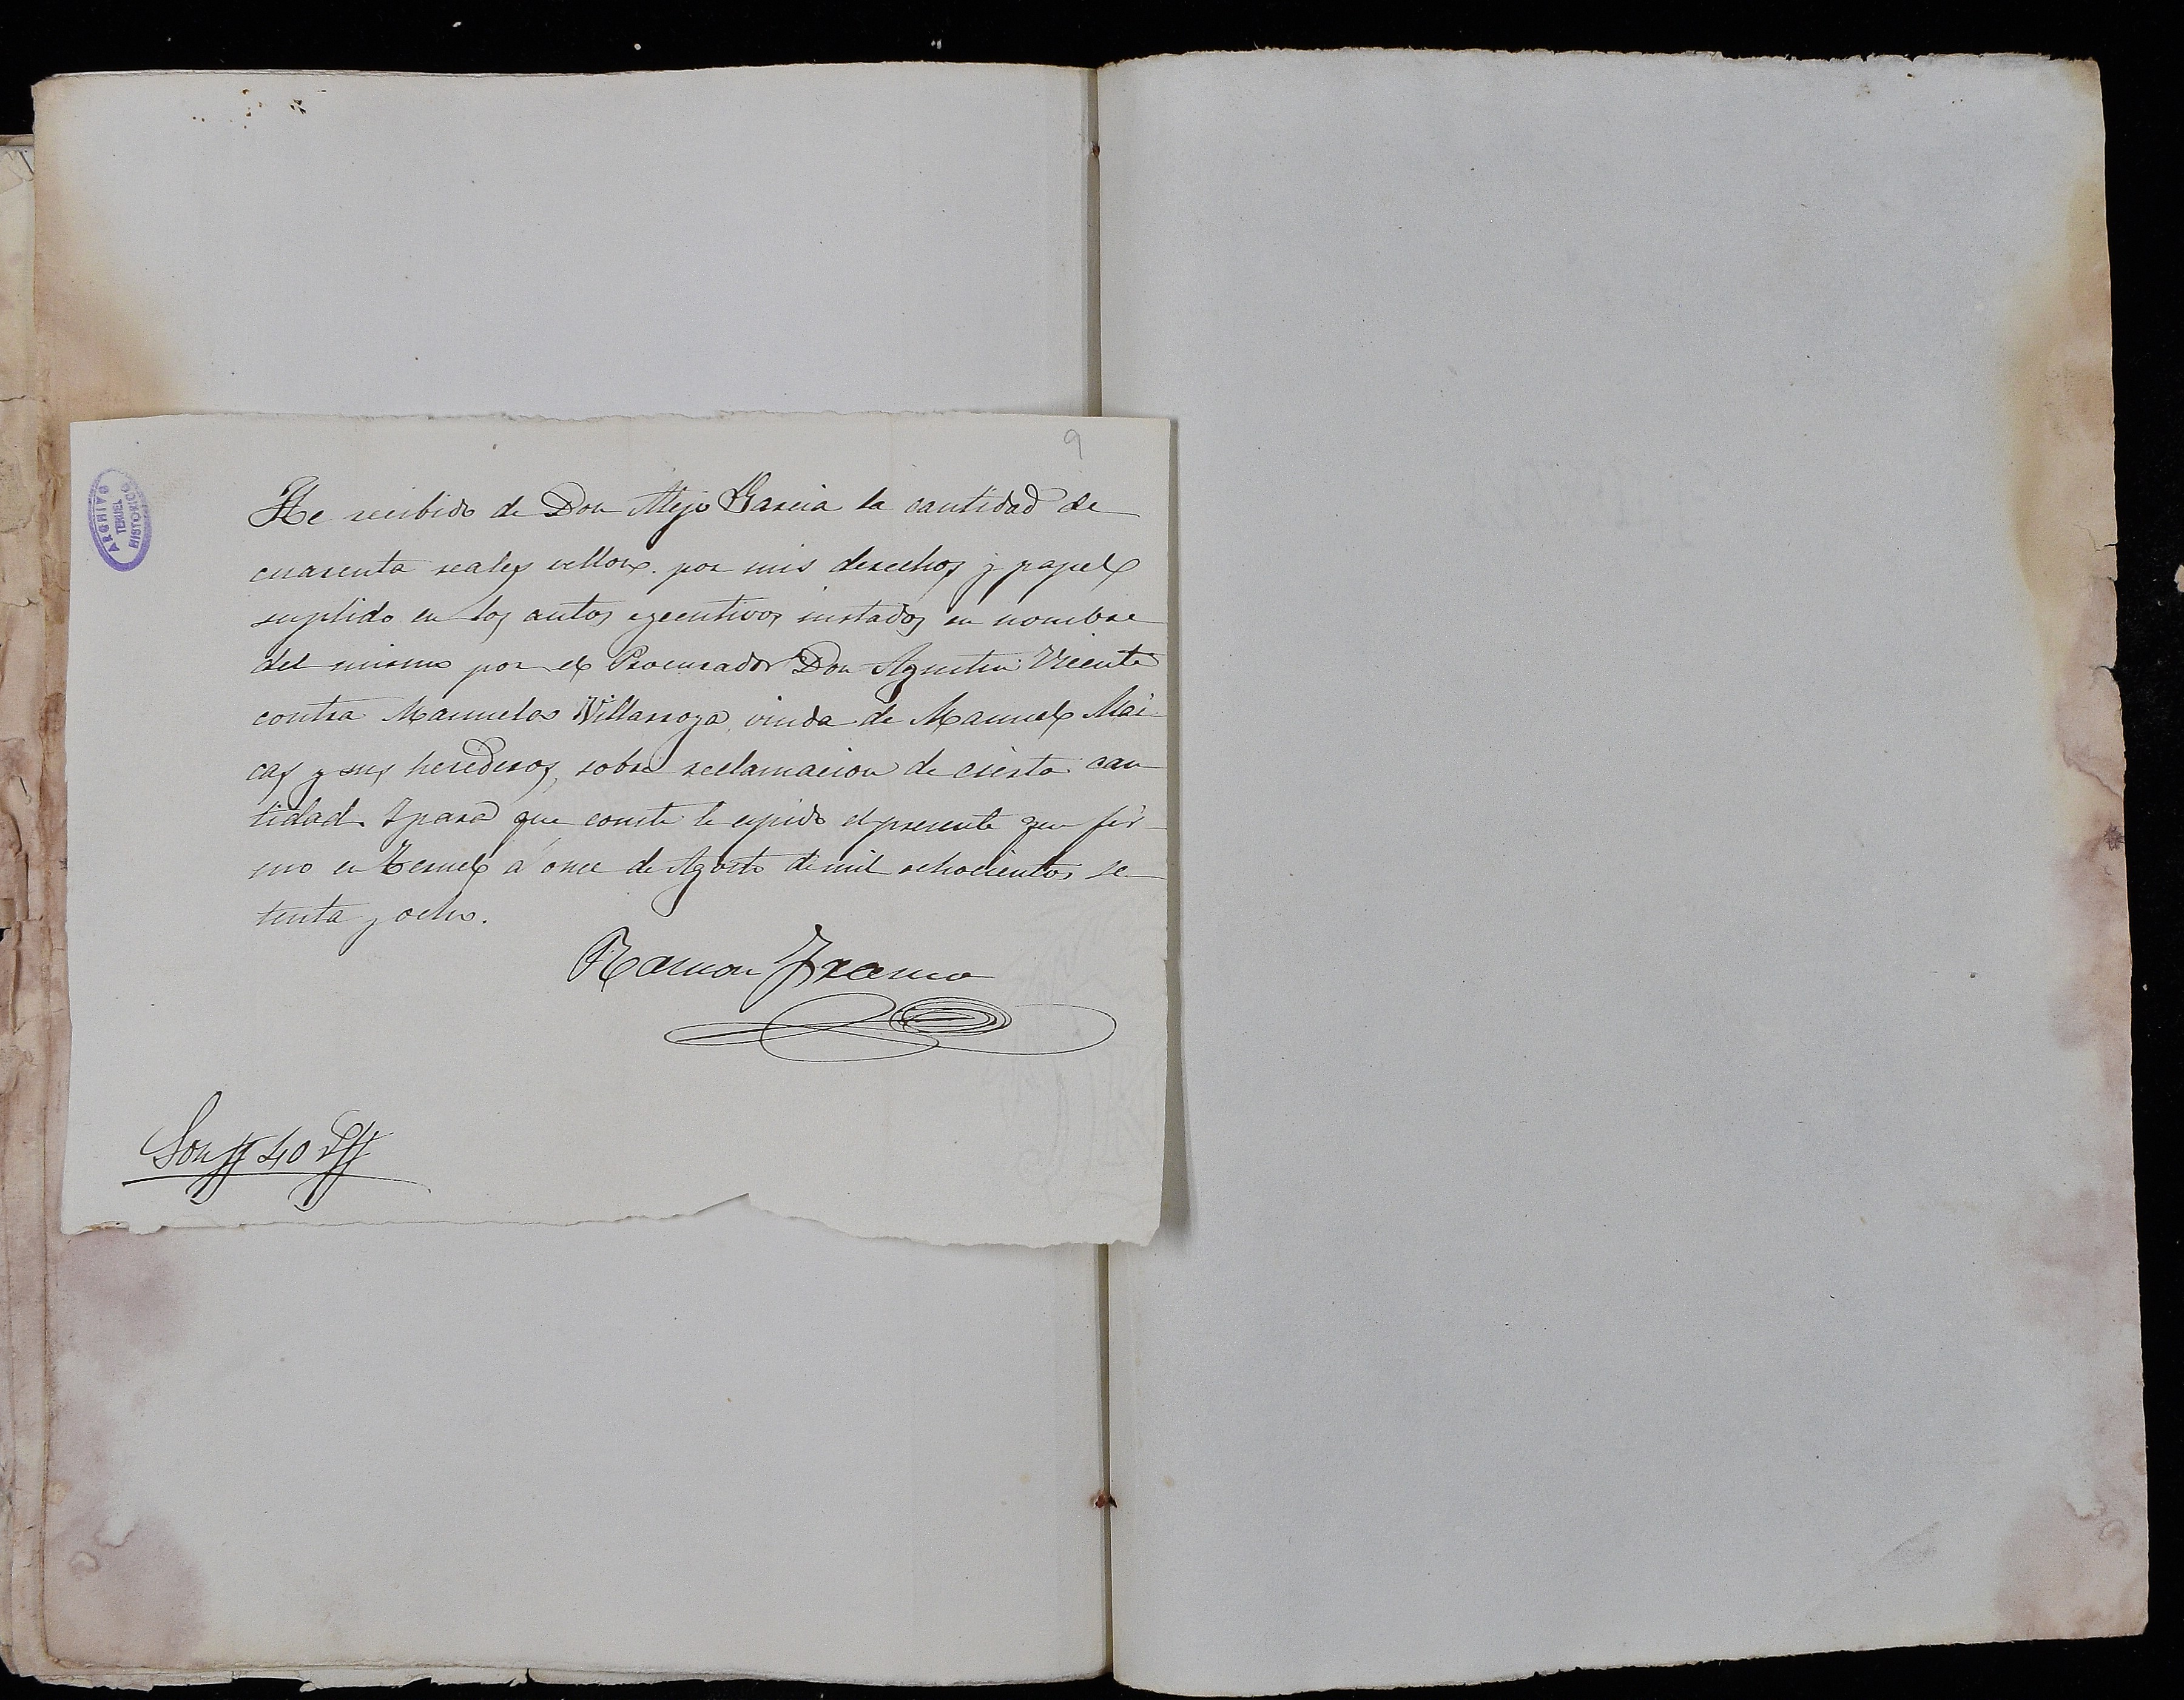 9
ARCHIVO
TERUEL
HISTORICO
He recibido de Don Alejo Garcia la cantidad de
cuarenta reales vellon. por mis derechos y papel
suplido en los autos egecutivos instados en nombre
del mismo por el Procurador Don Agustin Vicente
contra Manuela Villarroya, viuda de Manuel Mai
cas y sus herederos, sobre reclamacion de cierta can
tidad. Y para que conste le espido el presente que fir
mo en Teruel á once de Agosto de mil ochocientos se
tenta y ocho.
Ramon
Son 40